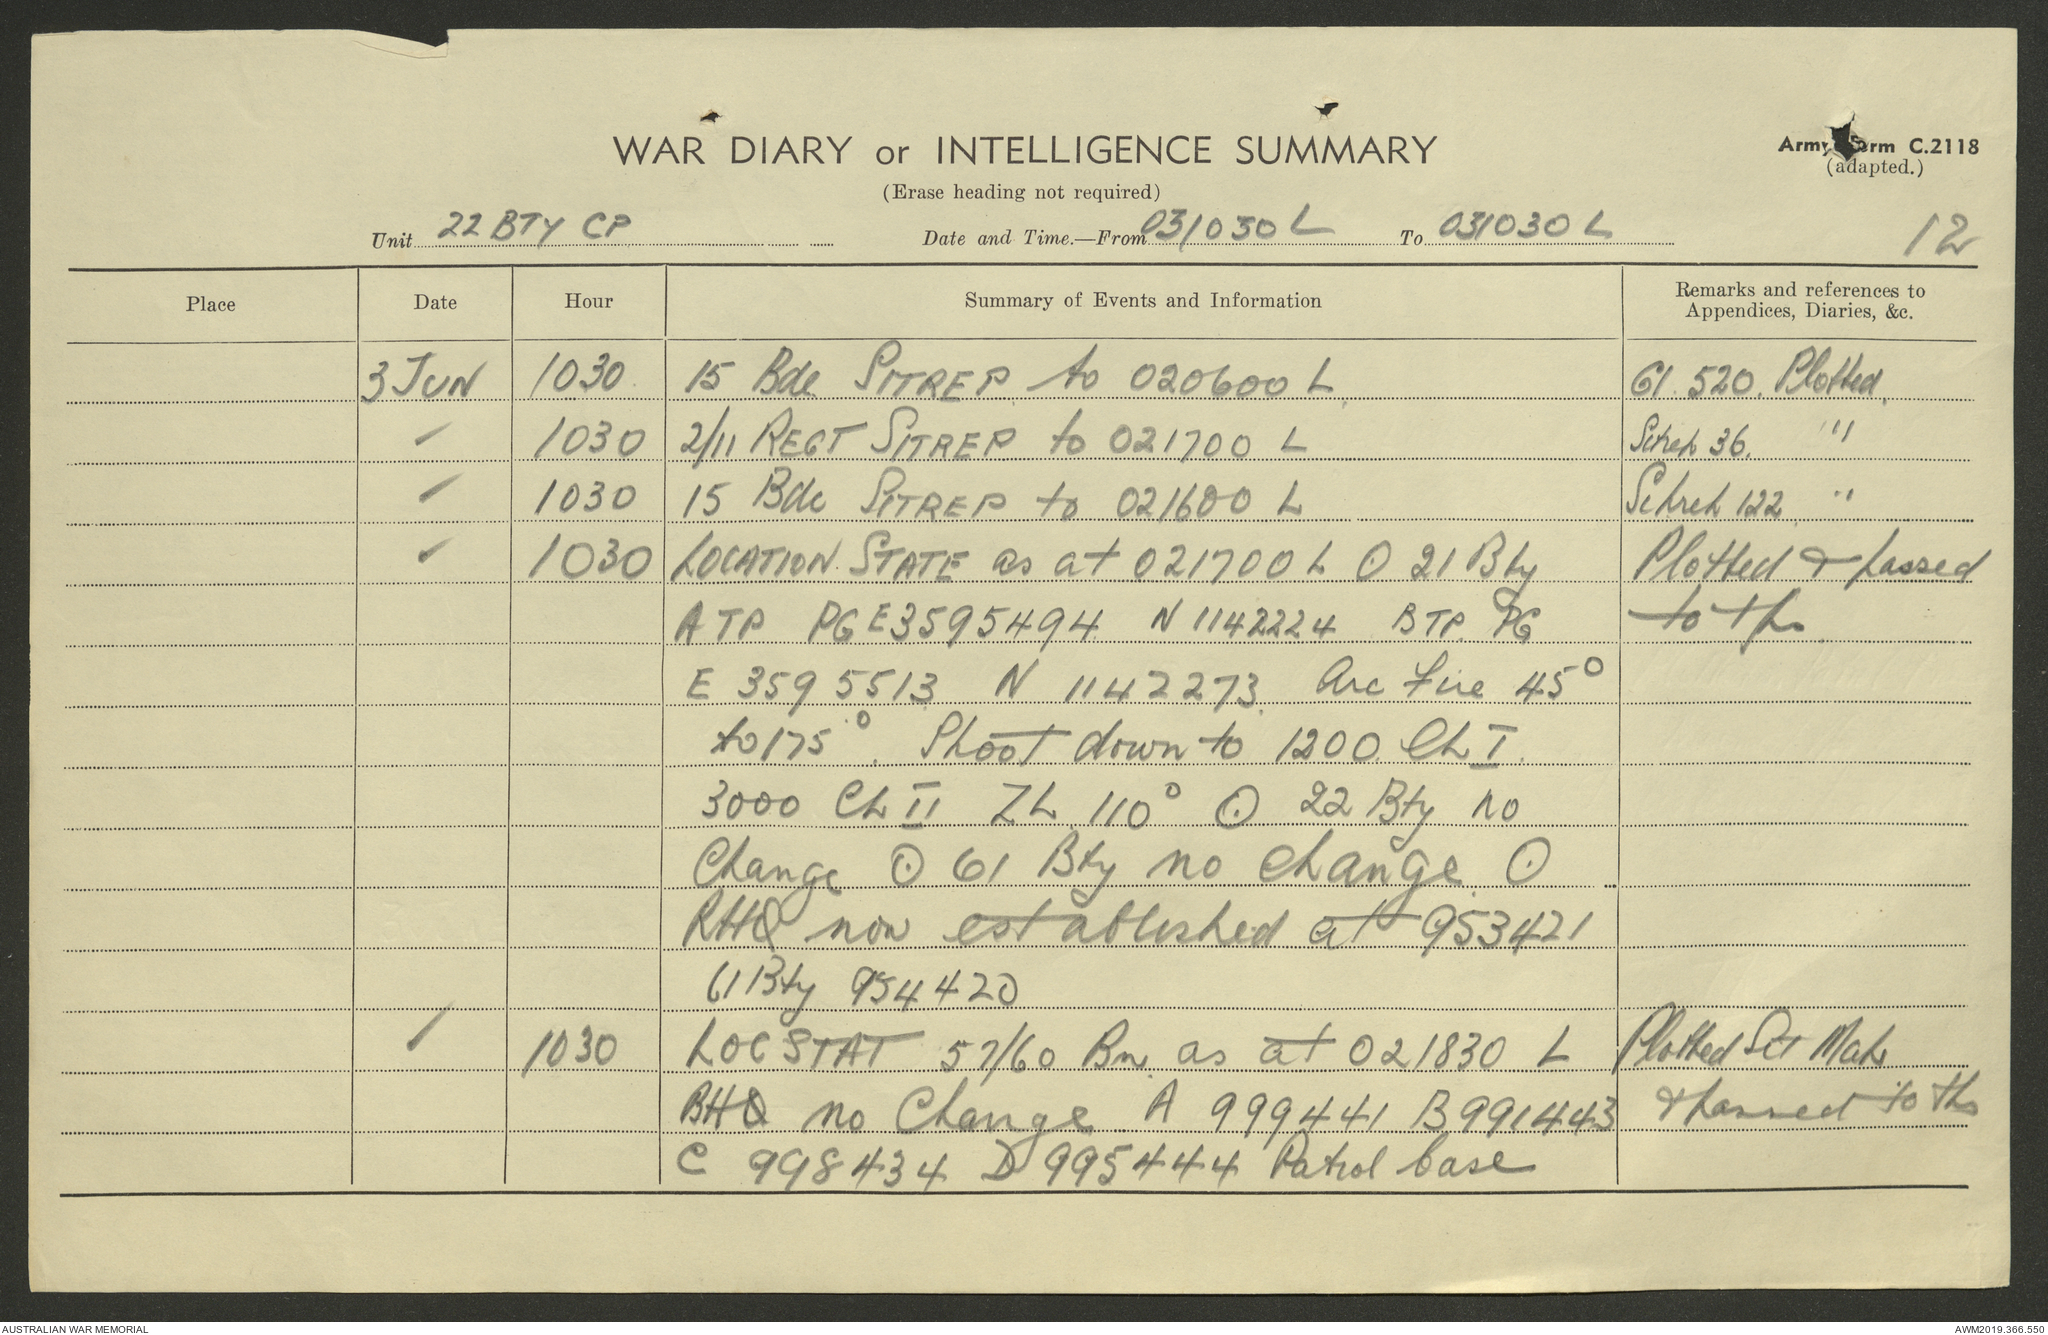 WAR DIARY or INTELLIGENCE SUMMARY
Army Form C.2118
(adapted.)
(Erase heading not required)
Unit 22 BTY CP Date and Time.—From 031030 L To 031030 L
12
Place Date Hour Summary of Events and Information Remarks and references to
Appendices, Diaries, &c.
3 JUN 1030 15 Bde SITREP to 020600 L G1 520. Plotted
" 1030 2/11 REGT SITREP to 021700 L Sitrep 36. "
" 1030 15 Bde SITREP to 021600 L Sitrep 122 "
" 1030 LOCATION STATE as at 021700 L ⊙ 21 Bty Plotted & passed
A TP PG E3595494 N 1142224 B TP. PG to tps
E 3595513 N 1142273. Arc Fire 45°
to 175°. Shoot down to 1200 Ch I.
3000 Ch II ZL 110° ⊙ 22 Bty no
Change ⊙ 61 Bty no change. ⊙
RHQ now established at 953421
61 Bty 954420
" 1030 LOC STAT 57/60 Bn. as at 021830 L Plotted Sit Map
BHQ no Change. A 999441 B 991443 & passed to tps
C 998434 D 995444 Patrol base
AUSTRALIAN WAR MEMORIAL
AWM2019.366.550